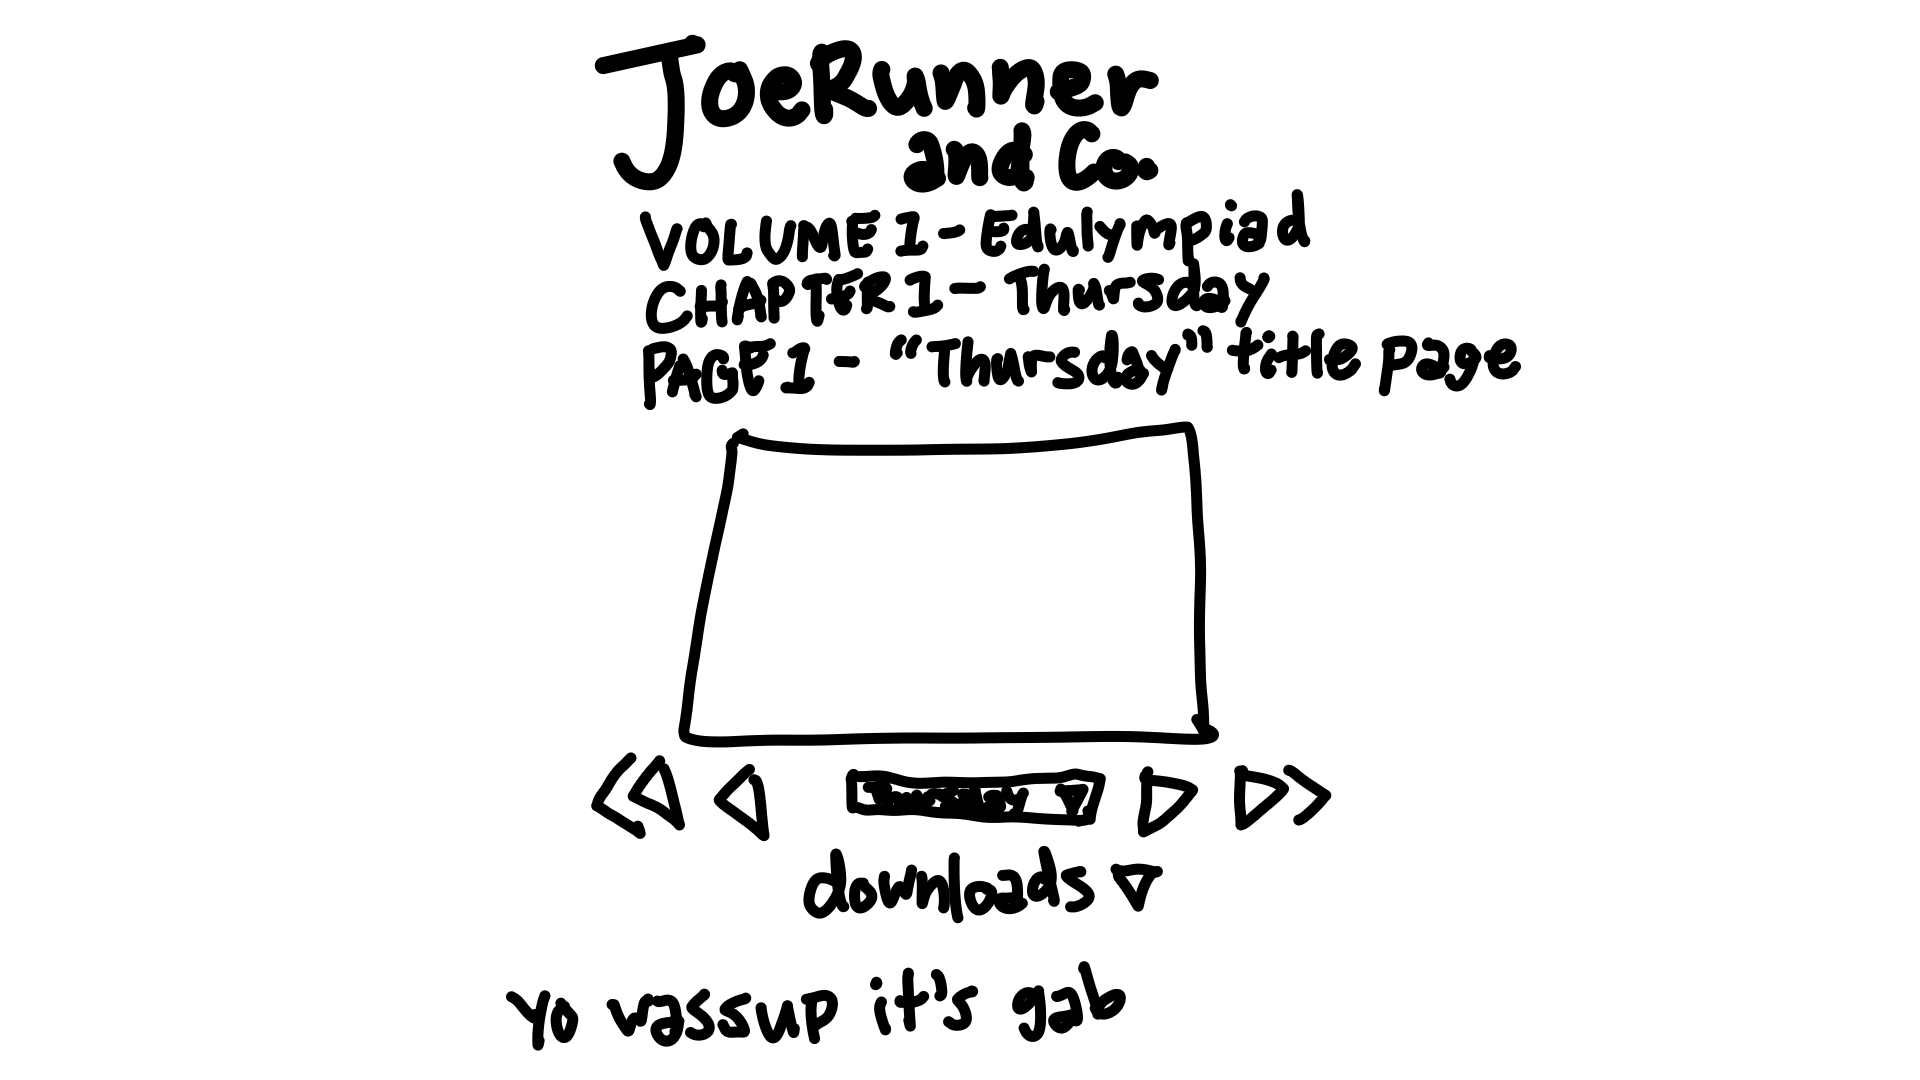 JoeRunner
and Co.
VOLUME 1 - Edulympiad
CHAPTER 1 - Thursday
PAGE 1 - "Thursday" title page
Thursday
downloads
yo wassup it's gab